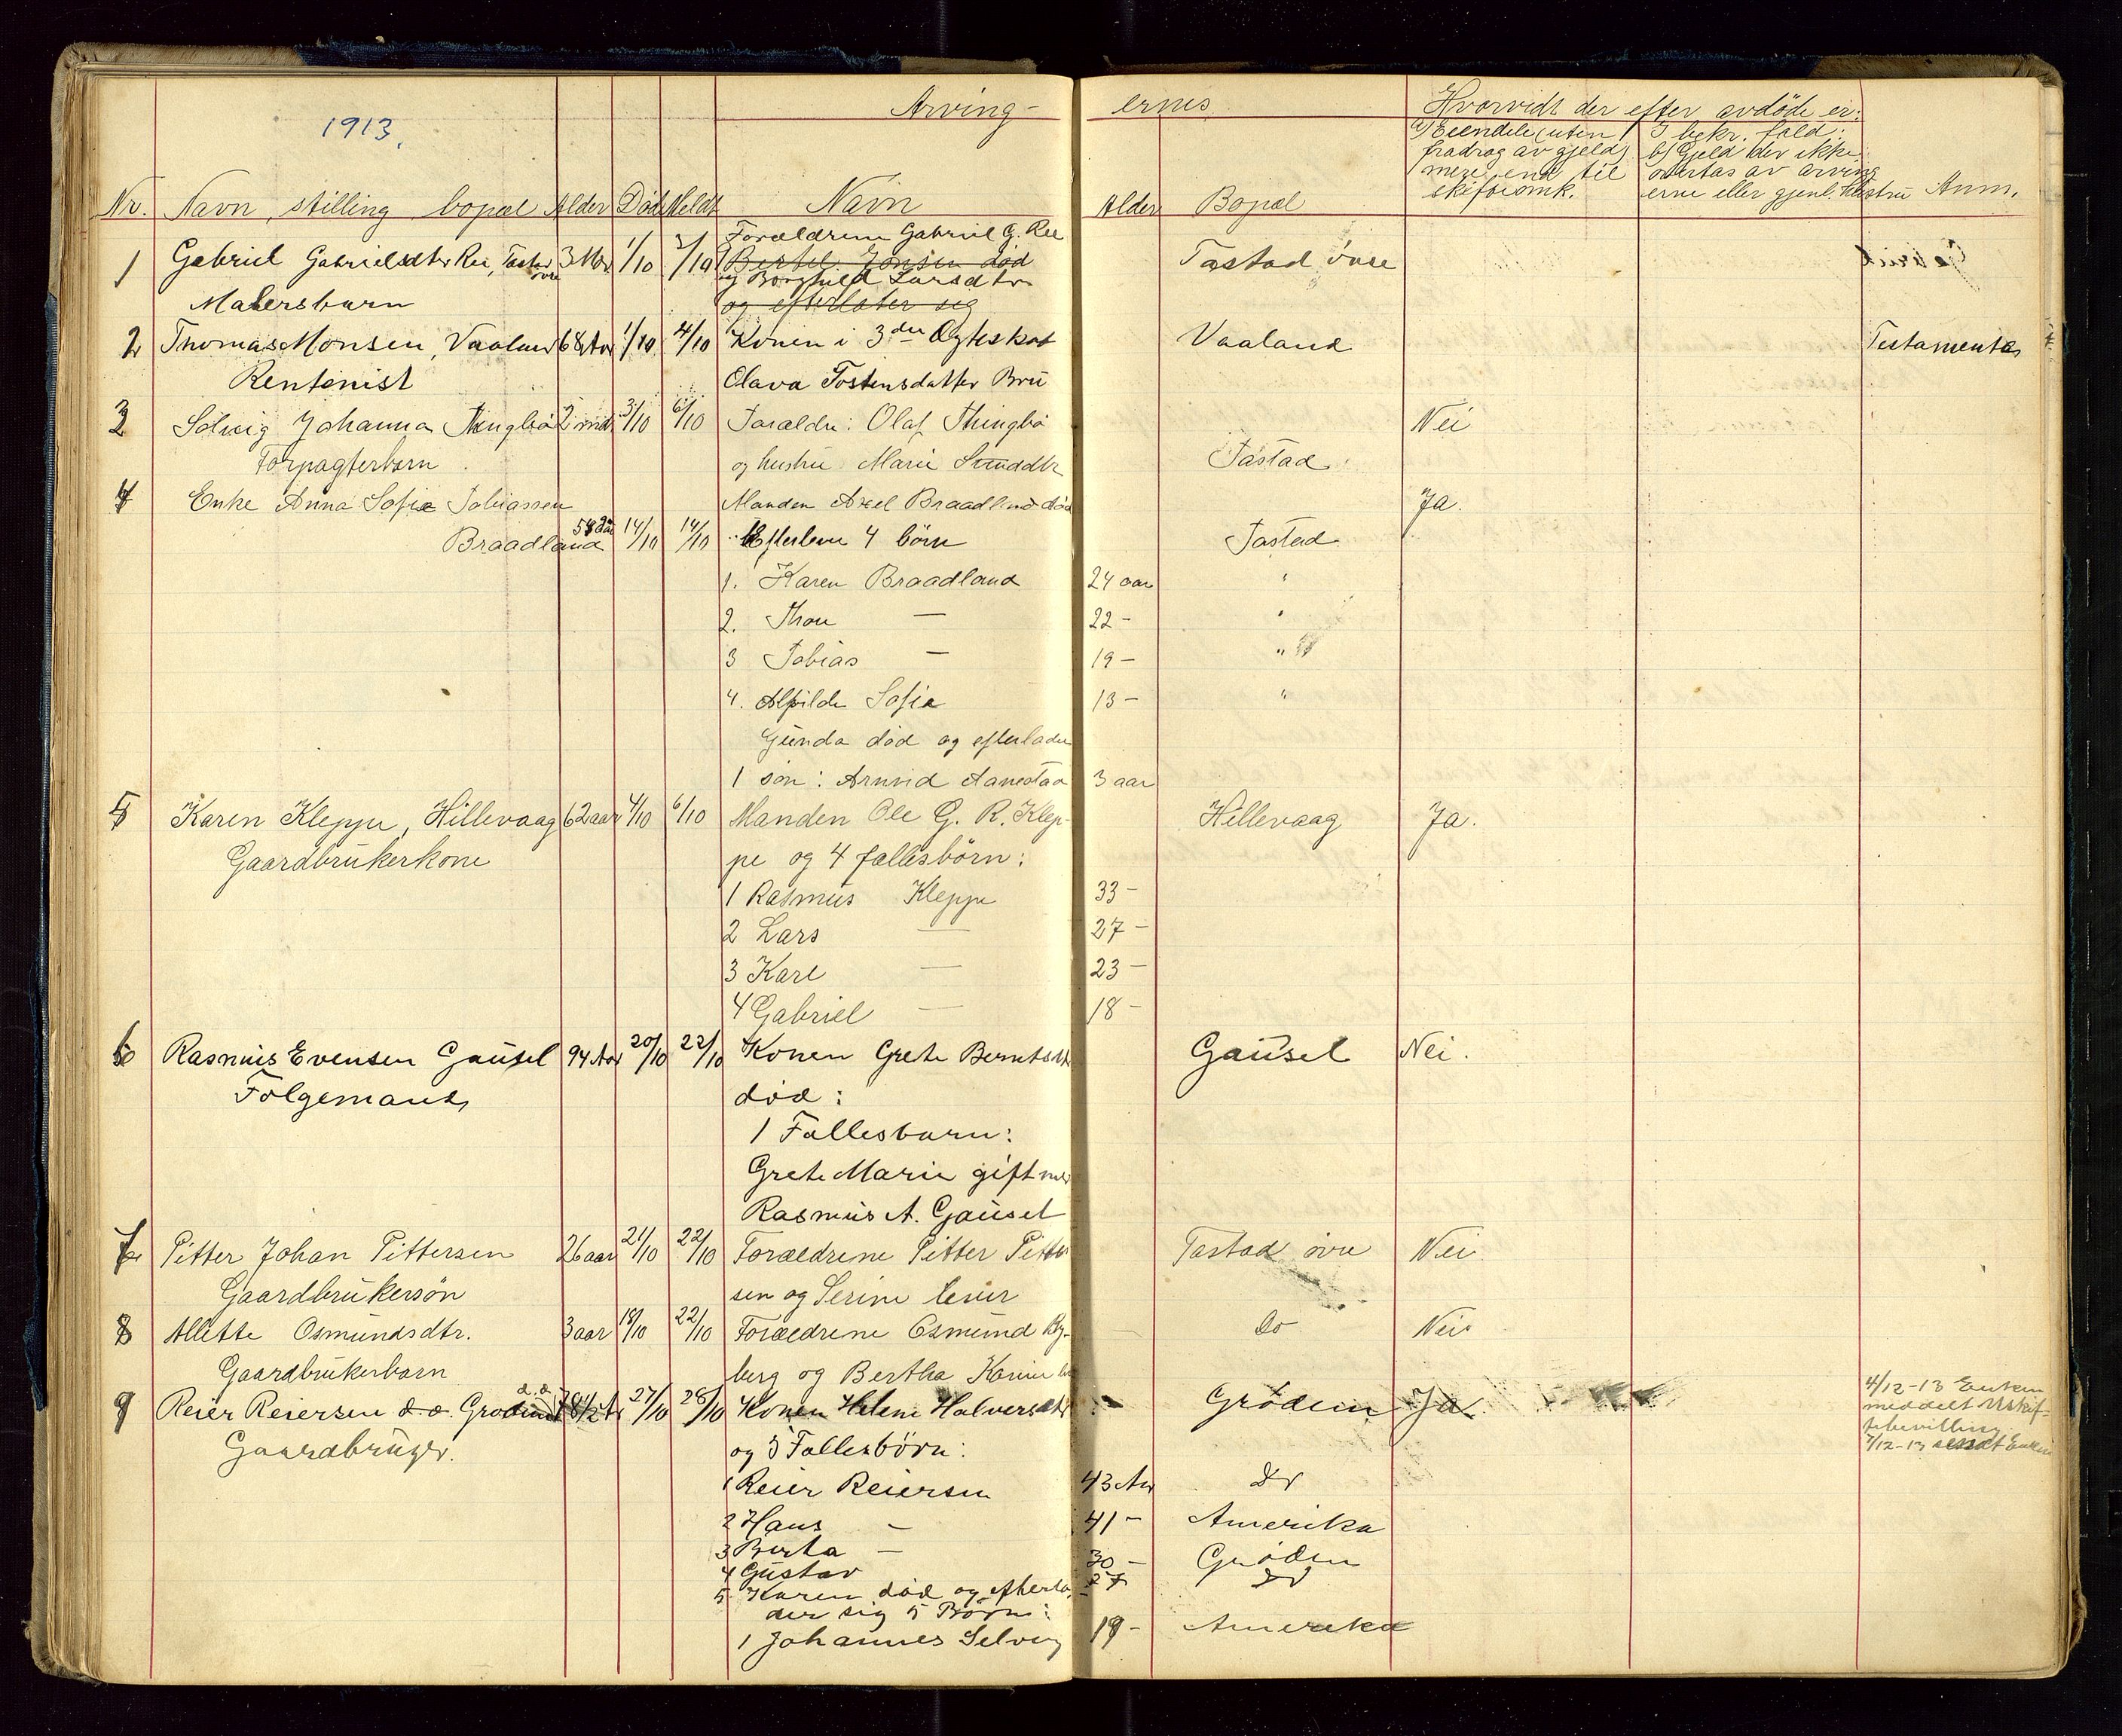 1913.
Arving- ernes
Hvorvidt der efter avdöde er:
a) Eiendele (uten fradrag av gjeld) mere end til skifteomk.
I bekr. fald: b) Gjeld der ikke overtas av arvingerne eller gjenl. hustru
Nr. Navn, stilling bopæl Alder Död Meldt Navn Alder Bopæl Anm.
Forældrene Gabriel G. Ree
1 Gabriel Gabrielsdtr Ree, Tastad övre 3 1/10 3/10 Bertel Jonsen död Tastad övre
og Borghild Larsdtr
Malersbarn og efterlater sig
2 Thomas Monsen, Vaaland 68 Aar 1/10 4/10 Konen i 3die Ægteskab Vaaland Testamente
Rentenist Olava Tostensdatter Bru
3 Solveig Johanna Thingbö 2 mnd 3/10 6/10 Foræld: Olaf Thingbö Nei
Forpagterbarn og hustru Marie Tastad
4 Enke Anna Sofie Tobiassen Manden Axel Braadland död Ja.
Braadland 14/10 14/10 Efterlever 4 börn Tastad
1. Karen Braadland 24 aar "
2. Thor — 22 - "
3 Tobias — 19 - "
4. Alfilde Sofie 13 - "
Gunda död og efterlader
1 sön: Arnvid Aanestad 3 aar
5 Karen Kleppe, Hillevaag 62 aar 4/10 6/10 Manden Ole G. R. Klep- Hillevaag Ja.
Gaardbrukerkone pe og 4 fællesbörn:
1 Rasmus Kleppe 33 -
2 Lars — 27 -
3 Karl — 23 -
4 Gabriel — 18 -
6 Rasmus Evensen Gausel 94 Aar 20/10 22/10 Konen Grete Berntsdtr Gausel Nei.
Folgemand död:
1 Fællesbarn:
Grete Marie gift med
Rasmus A. Gausel
7 Pitter Johan Pittersen 26 aar 21/10 22/10 Forældrene Pitter Pitter Tastad övre Nei
Gaardbrukersön sen og Serine lever
8 Allette Osmundsdtr. 3 aar 18/10 22/10 Forældrene Osmund By- Do Nei
Gaardbrukerbarn berg og Bertha Karine
9 Reier Reiersen d. o. Grödem 27/10 28/10 Konen Helene Halversdtr Grödem Ja 4/12-13 Enken
meddelt Uskif-
tebevilling
7/12-13 sendt Enken
Gaardbruger. og 5 Fællesbörn:
1 Reier Reiersen 43 Aar Do
2 Hans — 41 - Amerika
3 Berta — 30 - Grödem
4 Gustav 27 Do
5 Karen död og efterla-
der sig 5 Börn:
1 Johannes Selvig 19 - Amerika